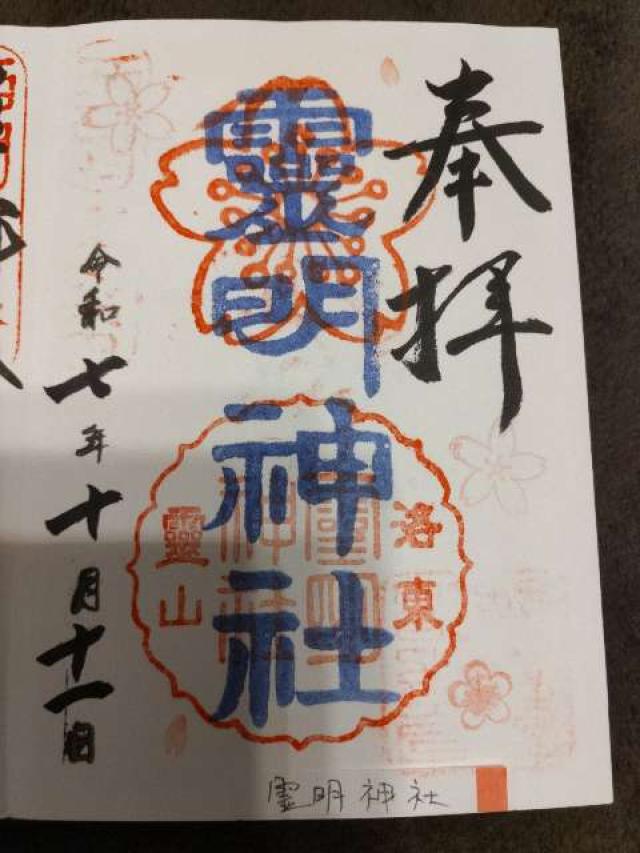 奉拝
靈明神社
洛東
靈山
靈明神社
令和七年十月十一日
霊明神社